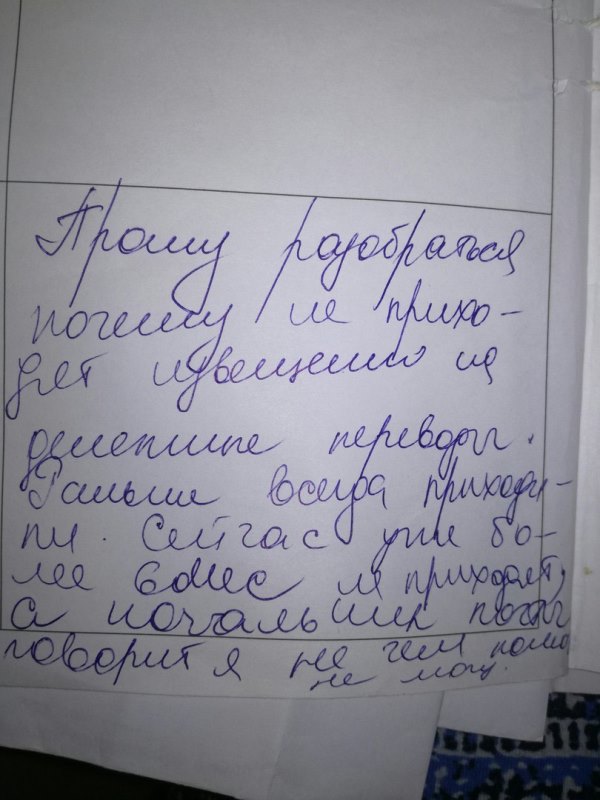 Прошу разобраться
почему не прихо-
дят извещения на
денежные переводы.
Раньше всегда приходи-
ли. Сейчас уже бо-
лее 6 мес не приходят,
а начальник почты
говорит я не чем помо
не могу.